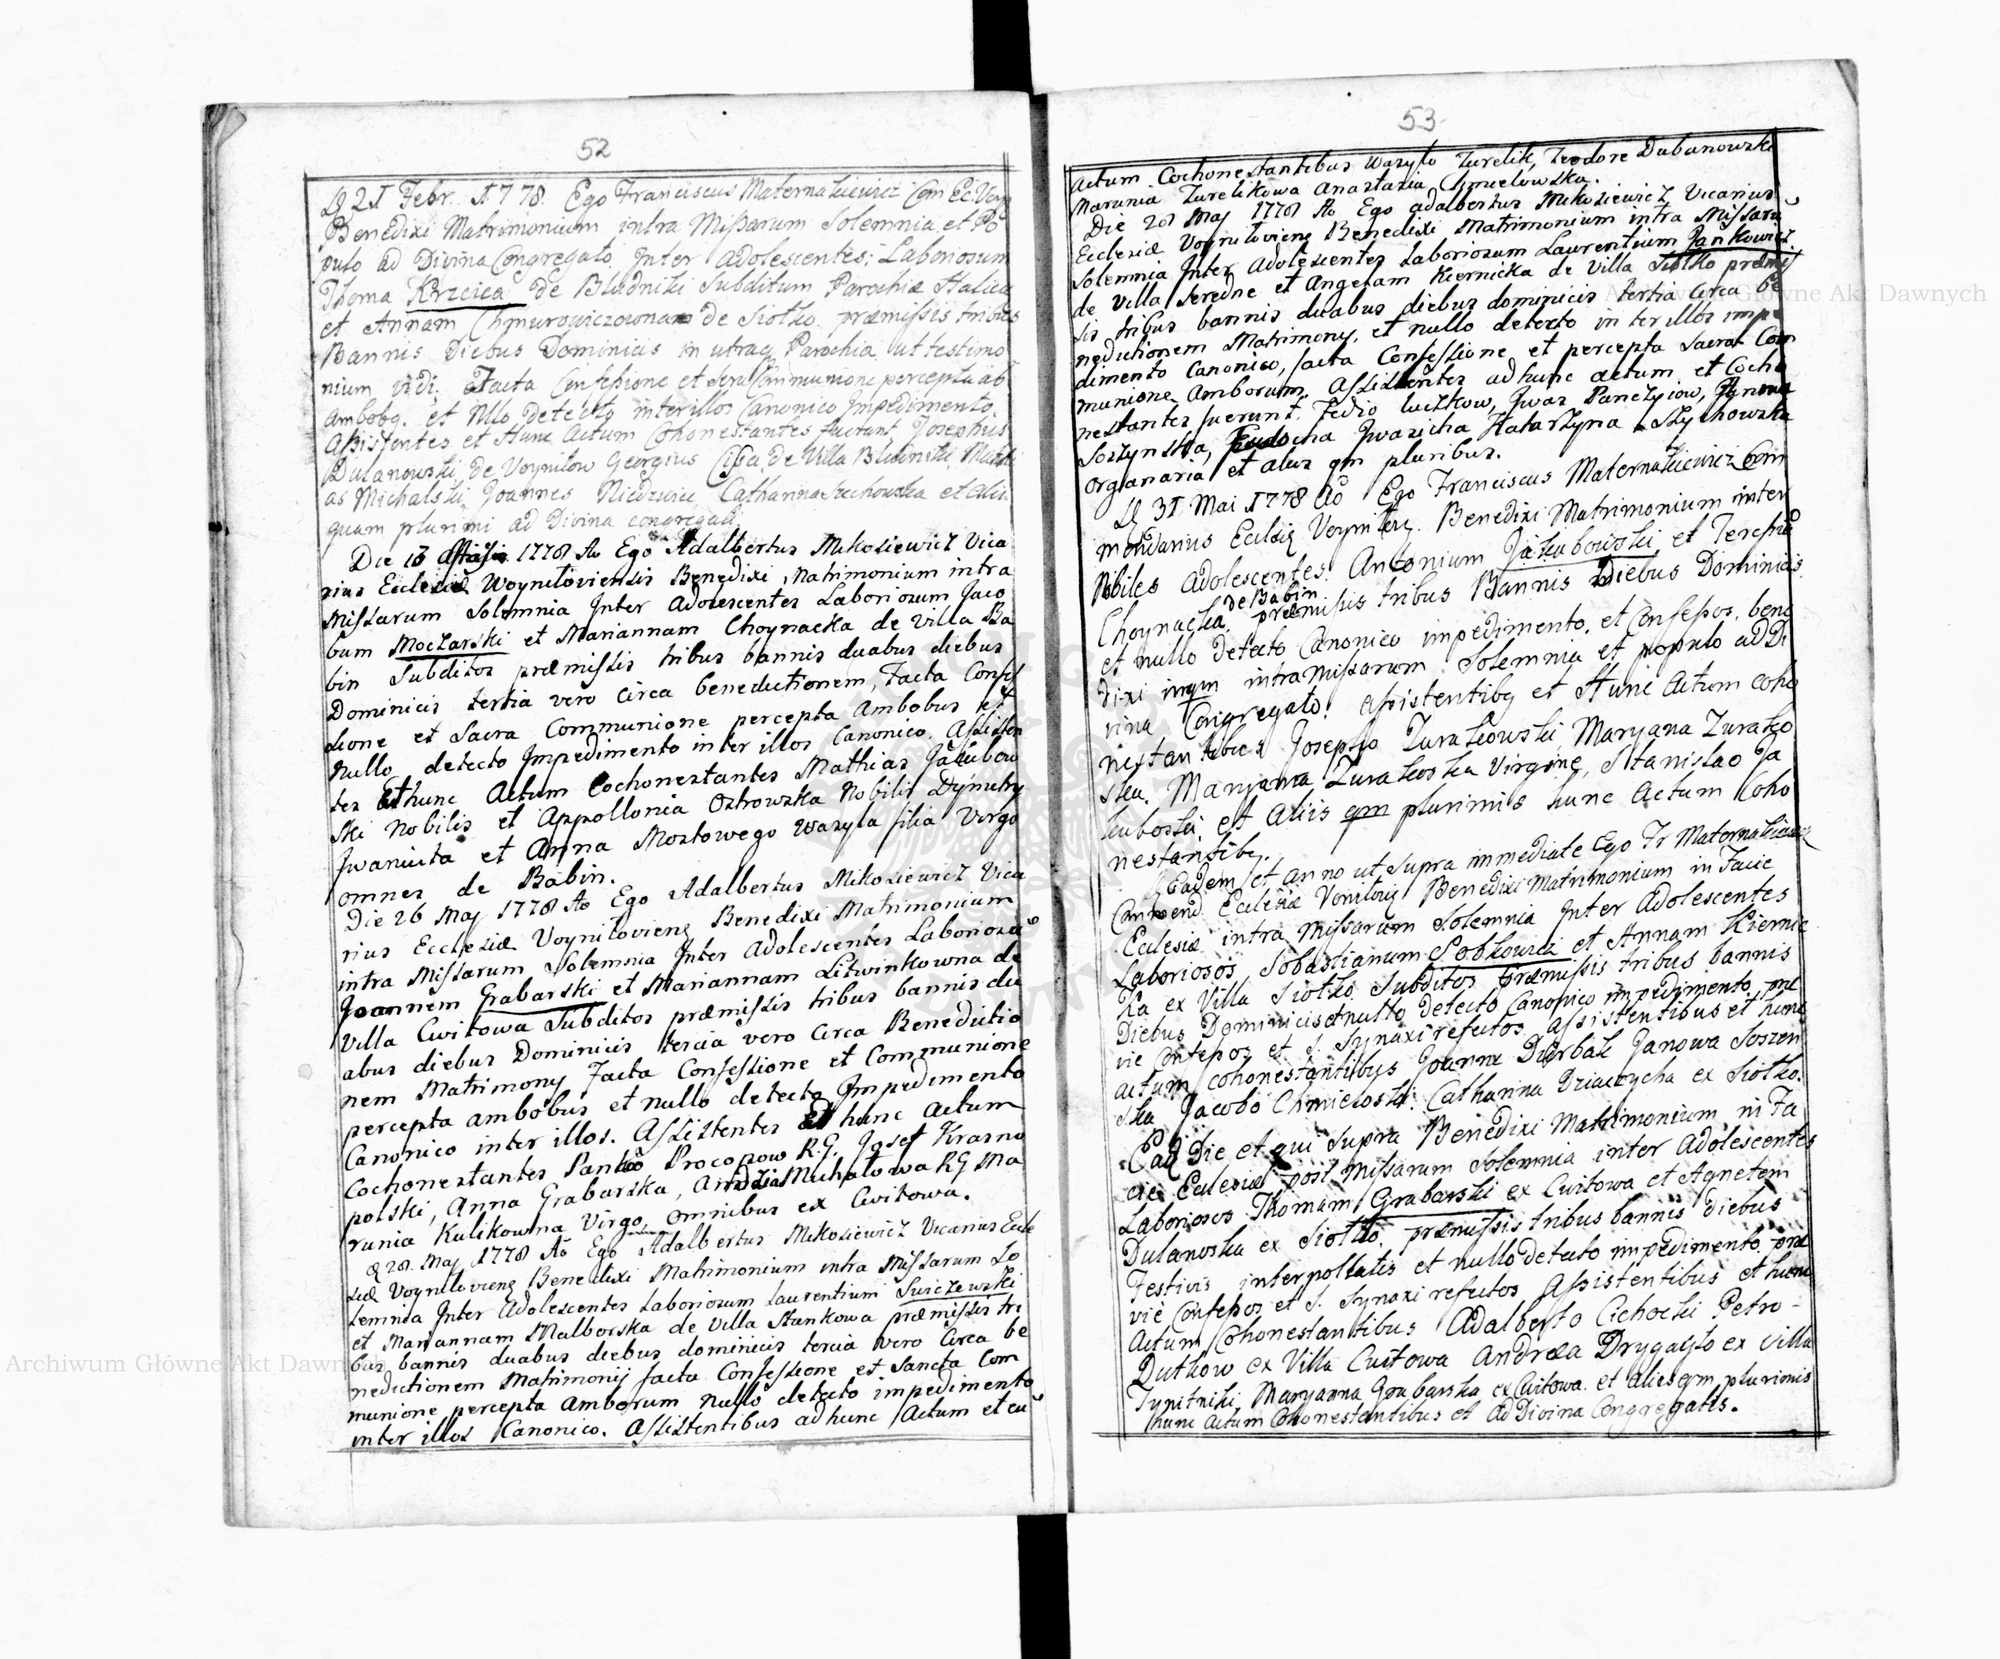 52
D 21 Febr. 1778. Ego Franciscus Maternakiewicz Com Ec: Voyn
Benedixi Matrimonium intra Missarum Solemnia et Po
pulo ad Divina Congregato. Inter Adolescentes: Laboriosum
Thoma Krzcica de Bludniki Subditum Parochiæ Halicz
et Annam Chmurowiczowna de Siolko præmissis tribus
Bannis Diebus Dominicis in utraq Parochia, ut testimo
nium vidi. Facta Confessione et Communione percepta ab
Ambobg. et Nllo Detecto inter illos Canonico Impedimento.
Assistentes et Hunc Actum Cohonestantes fuerunt, Josephus
Dulanowski, de Voynilow Georgius de Villa Mathi
as Michalski, Joannes Niedzwiec Catharina Szechowska et alii
quam plurimi ad Divina congregati.
Die 18 1778 Ao Ego Adalbertus Mikosiewicz Vica
rius Ecclesiæ Woyniloviensis Benedixi Matrimonium intra
Missarum Solemnia Inter Adolescentes Laboriosum Jaco
bum Moczarski et Mariannam Choynacka de Villa Ba
bin Subditos præmissis tribus bannis duabus diebus
Dominicis tertia vero circa benedictionem, Facta Confes
sione et Sacra Communione percepta Ambobus et
Nullo detecto Impedimento inter illos Canonico. Assisten
tes Et hunc Actum Cochonestantes Mathias Jakubow
ski Nobilis et Appollonia Ostrowska Nobilis Dymitry
Jwaniuta et Anna Mostowego Wasyla filia Virgo
omnes de Babin.
Die 26 Maj 1778 Ao Ego Adalbertus Mikosiewicz Vica
rius Ecclesiæ Voynilovieng Benedixi Matrimonium
intra Missarum Solemnia Inter Adolescentes Laboriosu
Joannem Grabarski et Mariannam Litwinkowna de
Villa Cwitowa Subditos præmissis tribus bannis du
abus diebus Dominicis tercia vero circa Benedictio
nem Matrimony Facta Confessione et Communione
percepta ambobus et nullo detecto Impedimento
Canonico inter illos. Assistentes et hunc Actum
Cochonestantes Panko Procopow R.G. Josef Krasno
polski, Anna Grabarska, Michalowa RG Ma
runia Kulikowna Virgo, omnibus ex Cwitowa.
D 28. Maj 1778 Ao Ego Adalbertus Mikosiewicz Vicarius Eccle
siæ Voynilovieng Benedixi Matrimonium intra Missarum So
lemnia Inter Adolescentes Laboriosum Laurentium Swiczewski
et Mariannam Malborska de Villa Stankowa præmissis tri
bus bannis duabus diebus dominicis tercia vero Circa be
nedictionem Matrimonij facta Confessione et Sancta Com
munione percepta Amborum nullo detecto impedimento
inter illos Canonico. Assistentibus ad hunc Actum et eu
53
Actum Cochonestantibus Wasylo Turelik, Teodore Dubanowski
Marunia Turelikowa Anastazia Chmielowska.
Die 28 Maj 1778 Ao Ego adalbertus Mikosiewicz Vicarius
Ecclesiæ Voynilovieng Benedixi Matrimonium intra Missaru
Solemnia Inter Adolescentes Laboriosum Laurentium Jankowicz
de Villa Seredne et Angelam Kiernicka de Villa Siolko præmis
sis tribus bannis duabus diebus dominicis tertia Circa be
nedictionem Matrimony. et nullo detecto inter illos impe
dimento Canonico, facta Confessione et percepta Sacra Com
munione Amborum. Assistentes ad hunc actum et Cocho
nestantes fuerunt. Fedio Luczkow, Jwas Panczyiow, Anna
Soszynska, Jwasicha Katarzyna Szychowska
Organaria et aliis qm pluribus.
D 31 Mai 1778 Ao Ego Franciscus Maternakiewicz Com
mendarius Ecclsiæ Voynilieg. Benedixi Matrimonium inter
Nobiles Adolescentes. Antonium Jakubowski et Teresia
de Babin
Choynacka. præmissis tribus Bannis Diebus Dominicis
et nullo Detecto Canonico impedimento. et Confessos. bene
dixi inqm intra Missarum Solemnia et populo ad Di
vina Congregato. Assistentibg et Hunc Actum coho
nestantibus Josepho Zurakowski, Maryana Zurako
ska. Maryana Zurakoska Virgine, Stanislao Ja
kuboski, et Aliis qm plurimis hunc Actum Coho
nestantibg.
Eadem et anno ut Supra immediate Ego Fr Maternakiewicz
Commend. Ecclesiæ Voniloieg Benedixi Matrimonium in Facie
Eclesiæ intra Missarum Solemnia Inter Adolescentes
Laboriosos Sobastianum Sobkowicz et Annam Kiernic
ka ex Villa Siolko Subditos præmissis tribus bannis
Diebus Dominicis et nullo Detecto Canonico impedimento, præ
vie Confessos et S. Synaxi refectos. Assistentibus et hunc
actum cohonestantibus Joanne Dierbak Janowa Soszen
ska Jacobo Chmieloski. Catharina Dziaczycha ex Siolko.
Ead Die et qui Supra Benedixi Matrimonium in Fa
cie Eclesiæ post Missarum Solemnia inter Adolescentes
Laboriosos Thomam Grabarski ex Cwitowa et Agnetem
Dulanoska ex Siolko. præmissis tribus bannis Diebus
Festivis interpollatis et nullo Detecto impedimento, præ
vie Confessos et S. Synaxi refectos Assistentibus et hunc
Actum Cohonestantibus Adalberto Cichocki Petro
Dutkow ex Villa Cwitowa Andrea Drygaylo ex Villa
Maryanna Grabarska ex Cwitowa. et aliis qm plurimis
hunc actum Cohonestantibus et ad Divina Congregatis.
Archiwum Główne Akt Dawnych
Archiwum Główne Akt Dawnych